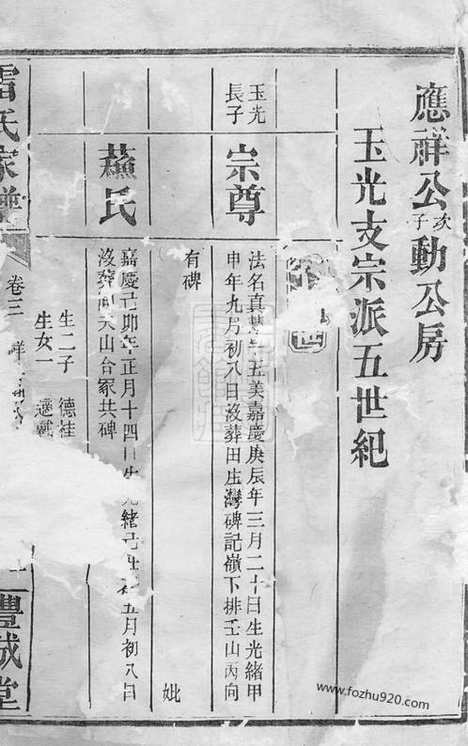 應祥公次子動公房
玉光支宗派五世紀
玉光長子
宗尊
法名真 五美嘉慶庚辰年三月二十日生光緒甲
申年九月初八日沒葬田庄灣碑記嶺下排壬山丙向
有碑
妣
蘓氏
嘉慶己卯年正月十四日 緒 五月初八日
沒葬 天山台冢共碑
生二子 德桂
生女一 適戴
雷氏家譜
卷三
豐城堂
www.fozhu920.com